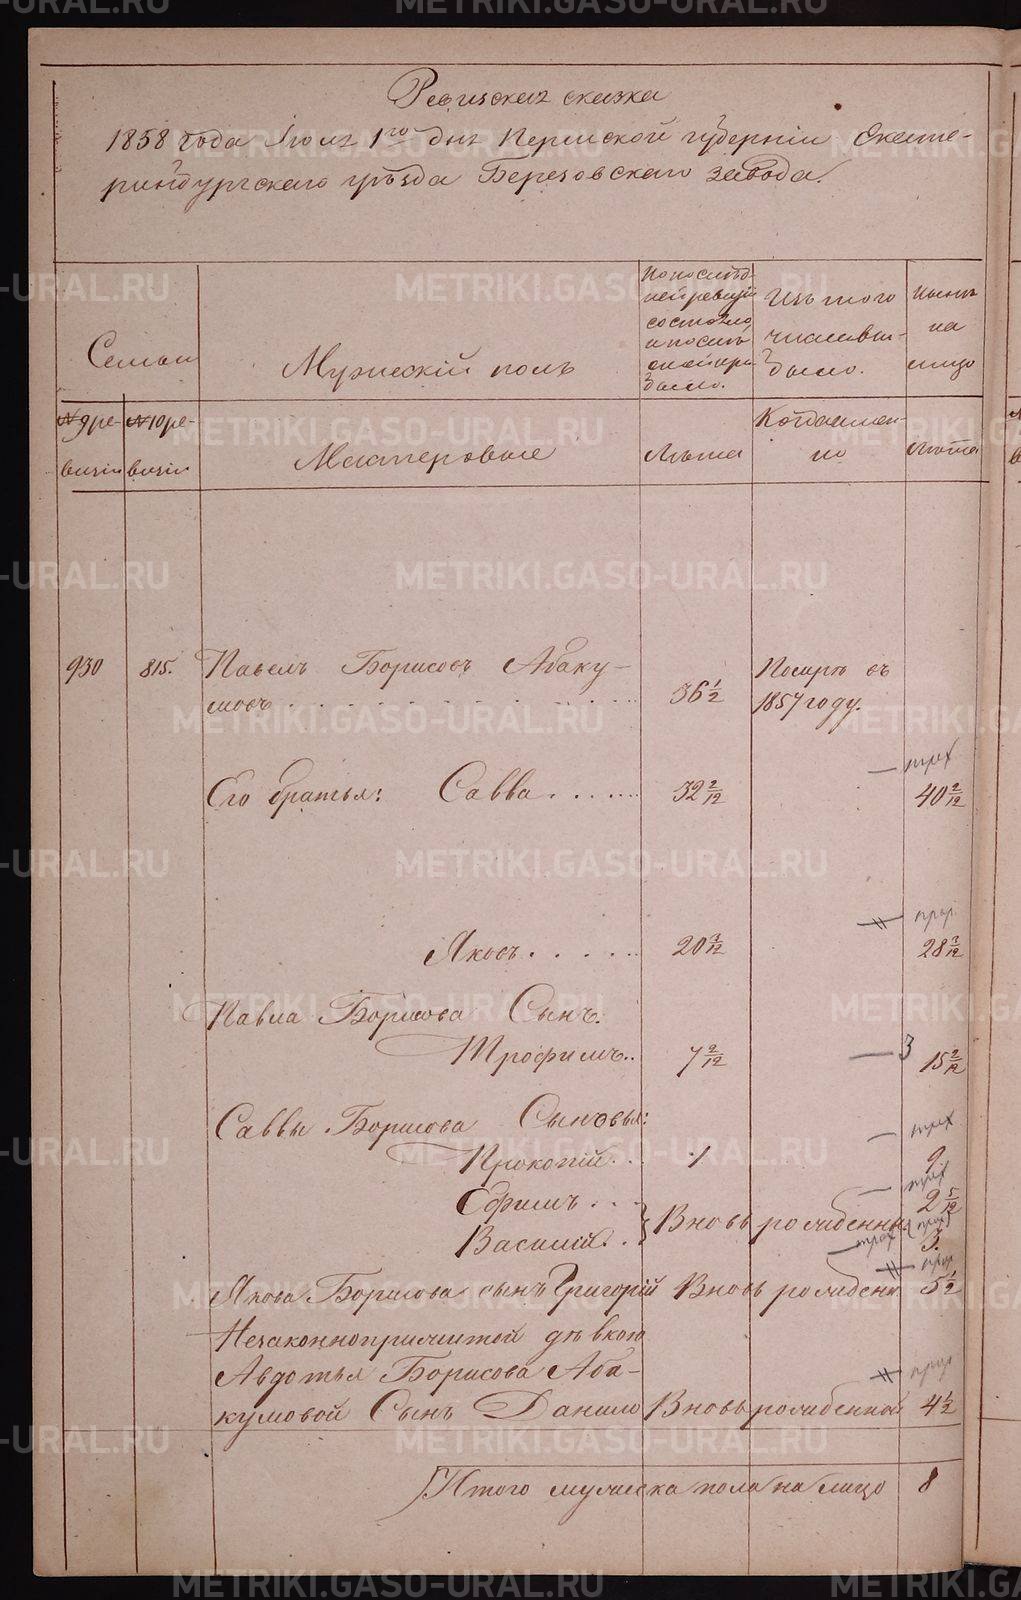 Ревизская сказка
1858 года Июля 1го дня Пермской губернии Екате-
ринбургского уѣзда Березовского завода.
Семьи
Мужескій полъ
По послѣд-
ней ревизіи
состояло,
и послѣ
оной при-
было.
Изъ того
числа вы-
было.
Нынѣ
на
лицо
№ 9 ре-
визіи
№ 10 ре-
визіи
Мастеровые
Лѣта
Когда имен-
но
Лѣта
930 815. Павелъ Борисовъ Абаку-
мовъ 36 1/2 Помре въ
1857 году.
Его братья: Савва 32 2/12 40 2/12
Яковъ 20 3/12 28 3/12
Павла Борисова Сынъ:
Трофимъ 7 2/12 3 15 2/12
Саввы Борисова Сыновья:
Прокопій 1 9
Ефимъ 2 5/12
Василій Вновь рожденны 3.
Якова Борисова сынъ Григорій Вновь рожденн 5 1/2
Незаконноприжитой дѣвкою
Авдотья Борисова Аба-
кумовой Сынъ Данило Вновь рожденной 4 1/2
Итого мужеска пола на лицо 8
METRIKI.GASO-URAL.RU